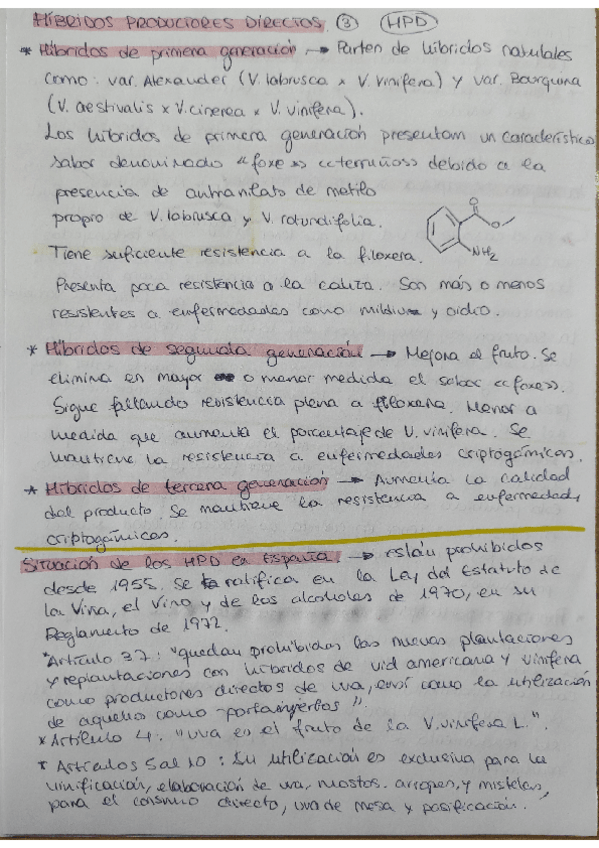 HÍBRIDOS PRODUCTORES DIRECTOS. ③ (HPD)
* Híbridos de primera generación → Parten de híbridos naturales
como: var. Alexander (V. labrusca x V. vinifera) y var. Bourquina
(V. aestivalis x V. cinerea x V. vinifera).
Los híbridos de primera generación presentan un característico
sabor denominado «foxe» «terruños» debido a la
presencia de antranilato de metilo
propio de V. labrusca y V. rotundifolia.
O
O
NH2
Tiene suficiente resistencia a la filoxera.
Presenta poca resistencia a la caliza. Son más o menos
resistentes a enfermedades como mildiu y oidio.
* Híbridos de segunda generación → Mejora el fruto. Se
elimina en mayor o menor medida el sabor «foxe».
Sigue fallando resistencia plena a filoxera. Menor a
medida que aumenta el porcentaje de V. vinifera. Se
mantiene la resistencia a enfermedades criptogámicas.
* Híbridos de tercera generación → Aumenta la calidad
del producto. Se mantiene la resistencia a enfermedades
criptogámicas.
Situación de los HPD en España. → están prohibidos
desde 1955. Se ratifica en la Ley del Estatuto de
la Viña, el Vino y de los alcoholes de 1970, en su
Reglamento de 1972.
*Artículo 37: "quedan prohibidas las nuevas plantaciones
y replantaciones con híbridos de vid americana y vinífera
como productores directos de uva, así como la utilización
de aquellos como portainjertos".
* Artículo 4. "uva es el fruto de la V. vinifera L.".
* Artículos 5 al 10: Su utilización es exclusiva para la
vinificación, elaboración de uva, mostos, arropes, y mistelas,
para el consumo directo, uva de mesa y pasificación."